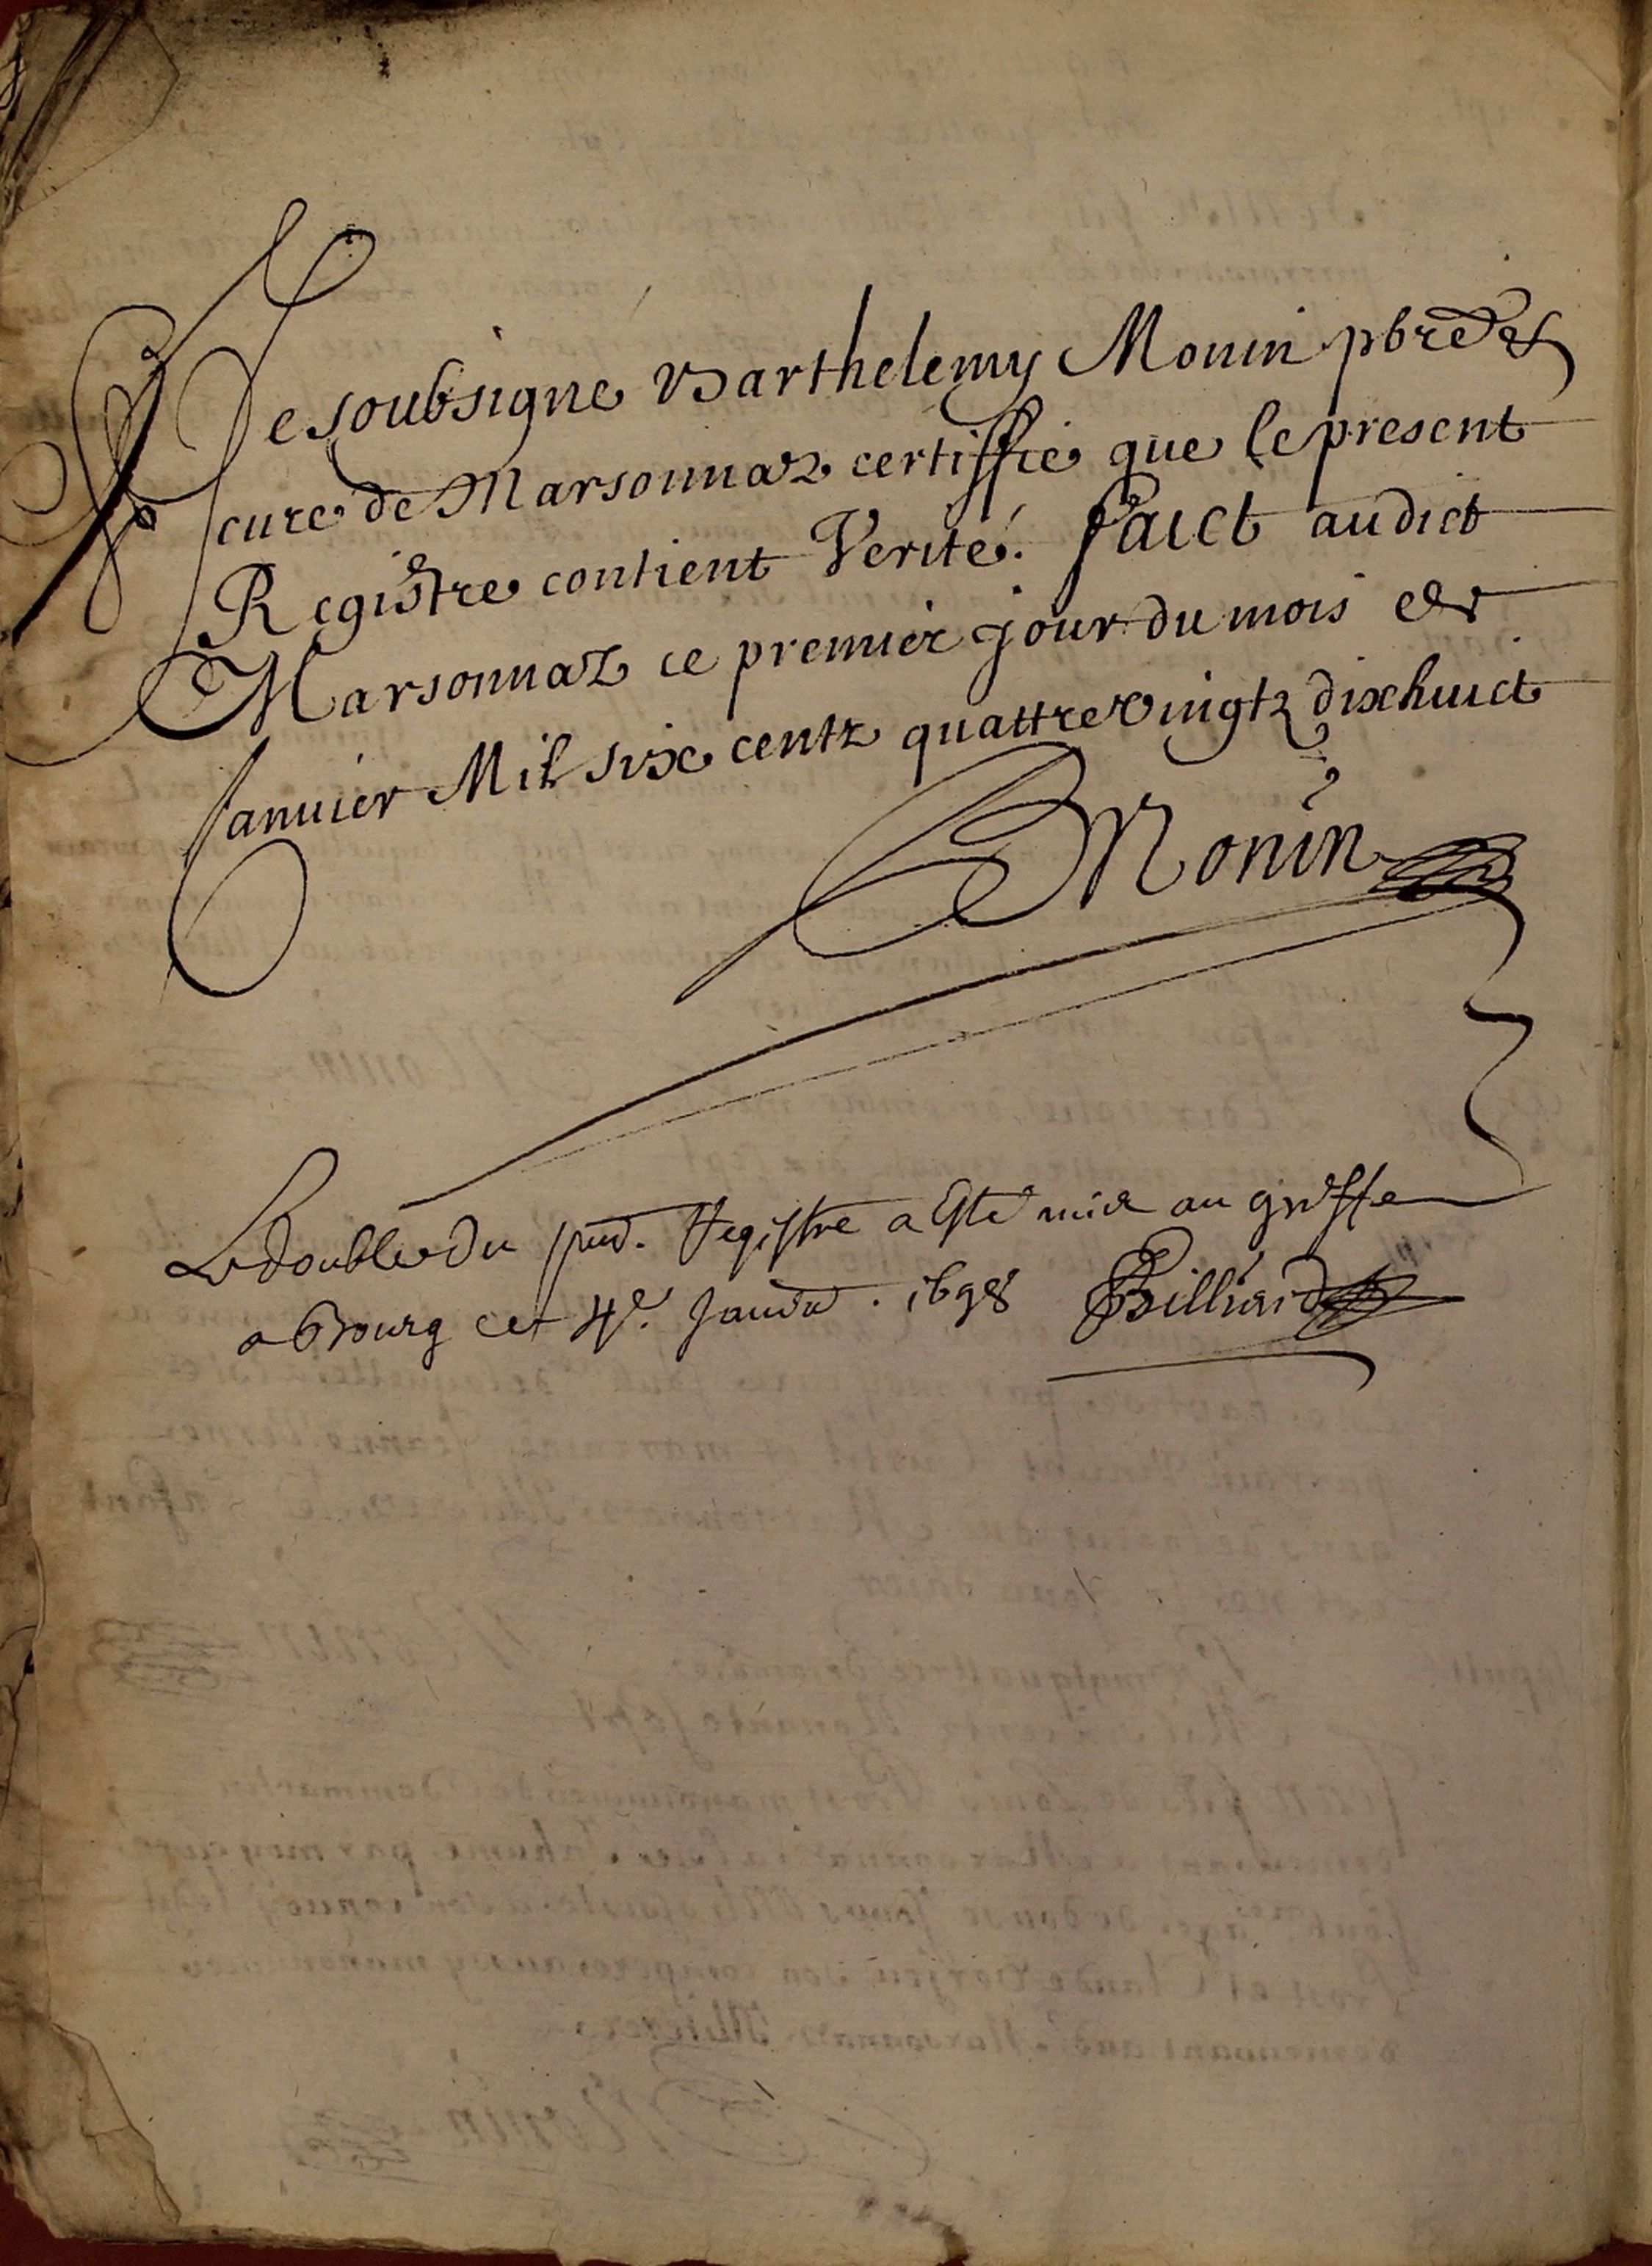 Je soubsigne Barthelemy Monin pbre et
cure de Marsonnaz certiffie que le present
Registre contient Verité. Faict audict
Marsonnaz ce premier jour du mois de
Janvier Mil six centz quattre vingtz dixhuict
Monin
Le double du pnt. Registre a Esté mis au greffe
a Bourg cet 4e. Janvier. 1698 Billiard